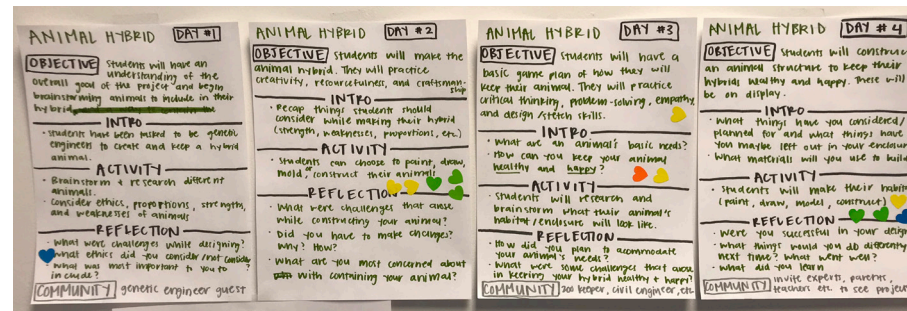 ANIMAL HYBRID DAY #1
OBJECTIVE students will have an
understanding of the
overall goal of the project and begin
brainstorming animals to include in their
hybrid.
INTRO
• students have been tasked to be genetic
engineers to create and keep a hybrid
animal.
ACTIVITY
• Brainstorm + research different
animals.
• Consider ethics, proportions, strengths,
and weaknesses of animals
REFLECTION
• What were challenges while designing?
• What ethics did you consider/not consider
• What was most important to you to
include?
COMMUNITY genetic engineer guest
ANIMAL HYBRID DAY #2
OBJECTIVE students will make the
animal hybrid. They will practice
creativity, resourcefulness, and craftsman-
ship
INTRO
• Recap things student should
consider while making their hybrid
(strength, weaknesses, proportions, etc.)
ACTIVITY
• Students can choose to paint, draw,
mold, construct their animal
REFLECTION
• What were challenges that arose
while constructing your animal?
• Did you have to make changes?
Why? How?
• What are you most concerned about
with containing your animal?
ANIMAL HYBRID DAY #3
OBJECTIVE Students will have a
basic game plan of how they will
keep their animal. They will practice
critical thinking, problem-solving, empathy
and design/sketch skills.
INTRO
• What are an animal's basic needs?
• How can you keep your animal
healthy and happy?
ACTIVITY
• Students will research and
brainstorm what their animal's
habitat/enclosure will look like.
REFLECTION
• How did you plan to accomodate
your animal's needs?
• What were some challenges that arose
in keeping your hybrid healthy + happy?
COMMUNITY zoo keeper, civil engineer, etc
ANIMAL HYBRID DAY #4
OBJECTIVE students will construc
an animal structure to keep their
hybrid healthy and happy. These will
be on display.
INTRO
• What things have you considered/
planned for and what things have
you maybe left out in your enclosu
• What materials will you use to build
ACTIVITY
• Students will make their habit
(paint, draw, model, construct)
REFLECTION
• Were you successful in your design
• What things would you do differently
next time? What went well?
• What did you learn
COMMUNITY invite experts, parents,
teachers etc. to see projec